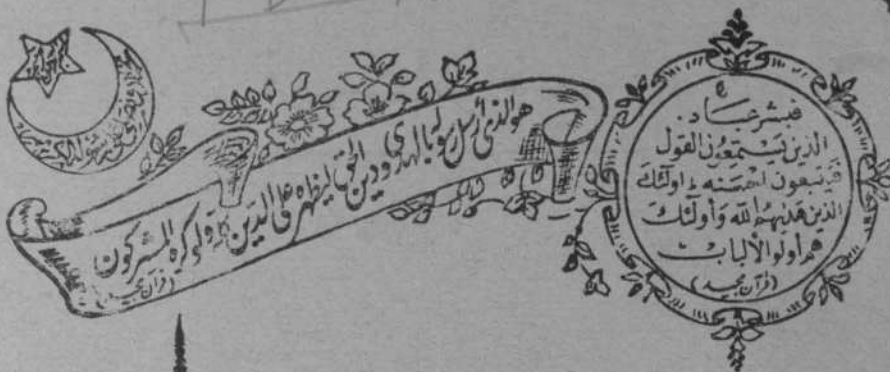 فبشر عباد.
الذين يستمعون القول
فيتبعون احسنه ط اولئك
الذين هدىهم الله وأولئك
هم أولوا الألباب
(قرآن مجيد)
هو الذى أرسل رسوله بالهدى ودين الحق ليظهره على الدين كله ولو كره المشركون
(قرآن مجيد)